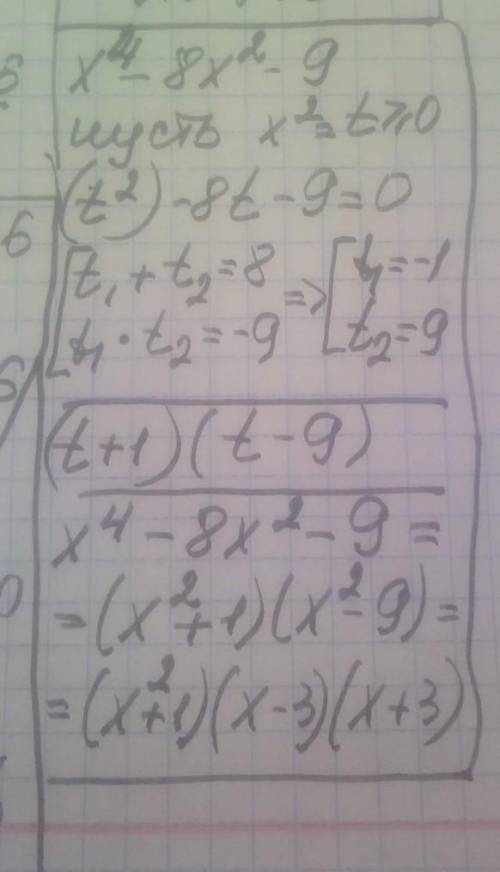 x⁴ - 8x² - 9
пусть x² = t ≥ 0
(t²) - 8t - 9 = 0
[t₁ + t₂ = 8
t₁ · t₂ = -9 => [t₁ = -1
t₂ = 9
(t+1)(t-9)
x⁴ - 8x² - 9 =
= (x²+1)(x²-9) =
= (x²+1)(x-3)(x+3)